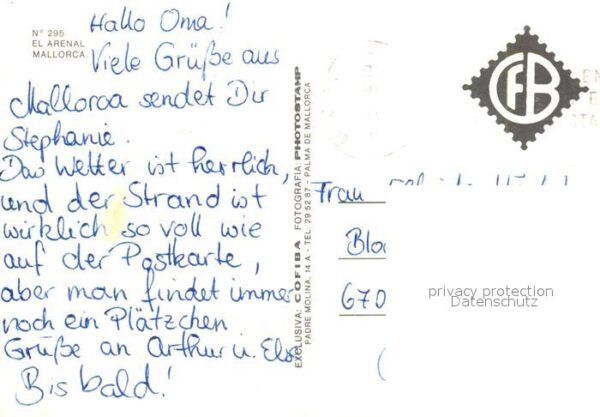 Nº 295
EL ARENAL
MALLORCA
Hallo Oma!
Viele Grüße aus
Mallorca sendet Dir
Stephanie.
Das Wetter ist herrlich,
und der Strand ist
wirklich so voll wie
auf der Postkarte,
aber man findet immer
noch ein Plätzchen
Grüße an Arthur u.
Bis bald!
EXCLUSIVA: COFIBA FOTOGRAFIA: PHOTOSTAMP
PADRE MOLINA, 14 A - TEL. 29 52 87 - PALMA DE MALLORCA
CFB
Frau
670
privacy protection
Datenschutz